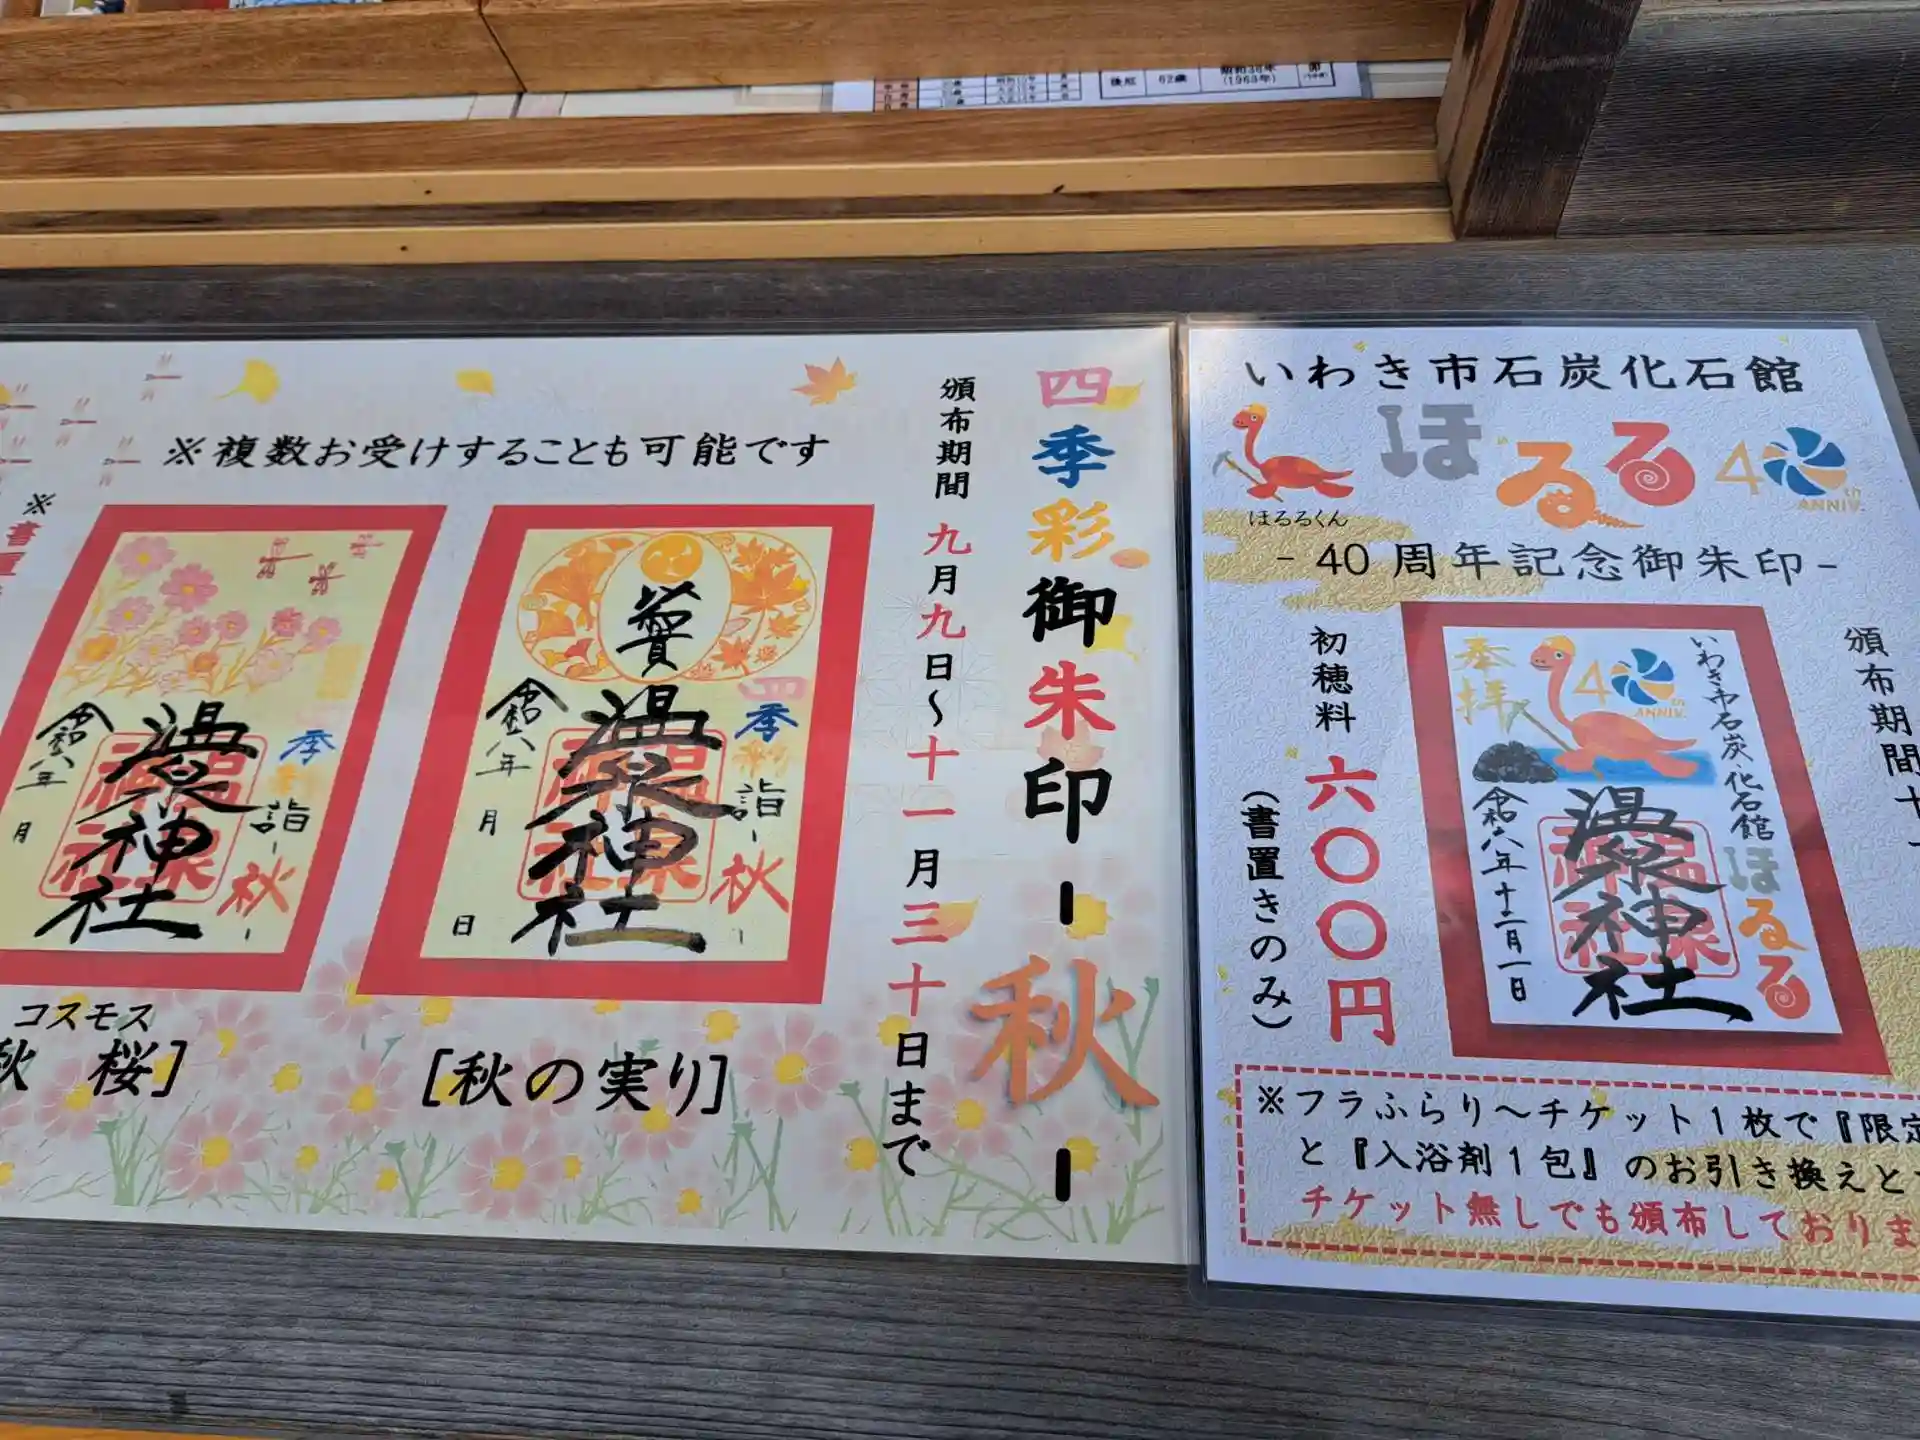 後厄 62歳 (1963年)
四季彩御朱印-秋-
頒布期間 九月九日～十一月三十日まで
※複数お受けすることも可能です
奉賀
四季彩詣-秋-
温泉神社
令和八年 月 日
[秋の実り]
季
詣-秋-
温泉神社
令和八年 月
コスモス
秋 桜]
※書置
いわき市石炭化石館
ほるる 40th ANNIV.
ほるるくん
-40周年記念御朱印-
頒布期間十一
初穂料 六〇〇円
(書置きのみ)
奉拝
40th ANNIV.
いわき市石炭化石館ほるる
温泉神社
令和八年十二月一日
※フラふらり～チケット1枚で『限定
と『入浴剤1包』のお引き換えと
チケット無しでも頒布しておりま